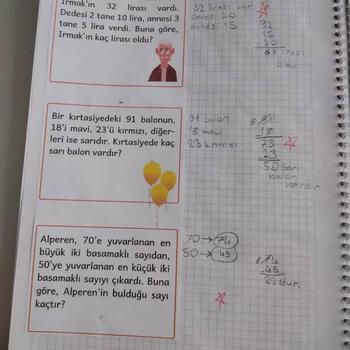 Irmak'ın 32 lirası vardı.
Dedesi 2 tane 10 lira, annesi 3
tane 5 lira verdi. Buna göre,
Irmak'ın kaç lirası oldu?
32 lirası var
dedesi 20
annesi 15
32
15
20
67 lirası
oldu
Bir kırtasiyedeki 91 balonun,
18'i mavi, 23'ü kırmızı, diğer-
leri ise sarıdır. Kırtasiyede kaç
sarı balon vardır?
91 balon
18 mavi
23 kırmızı
8 91
18
73
23
50 sarı
balon
vardır
Alperen, 70'e yuvarlanan en
büyük iki basamaklı sayıdan,
50'ye yuvarlanan en küçük iki
basamaklı sayıyı çıkardı. Buna
göre, Alperen'in bulduğu sayı
kaçtır?
70 → 74
50 → 45
6 74
45
29 dur.